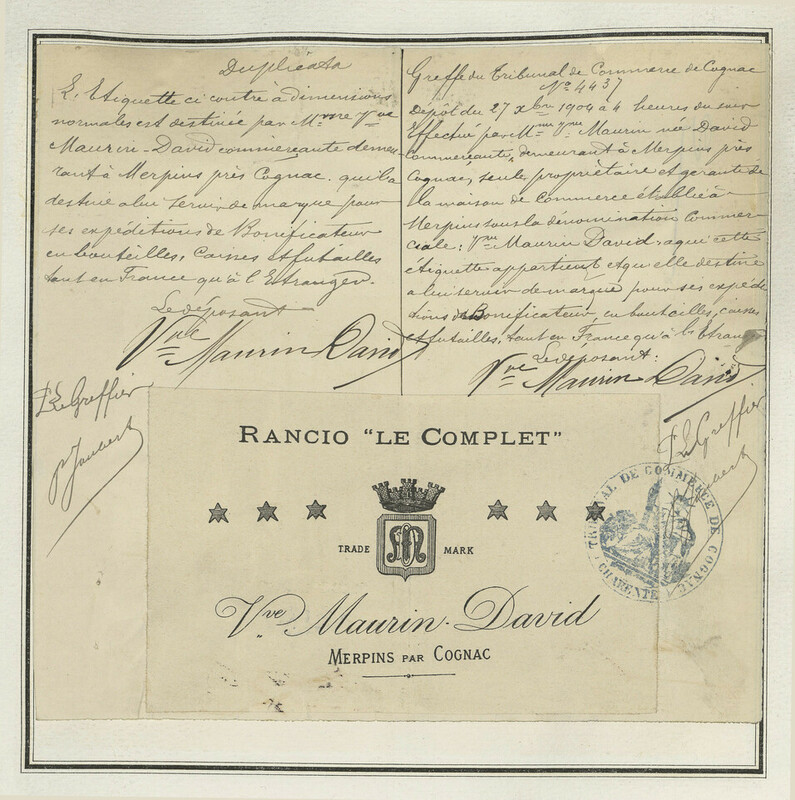 Duplicata
L'Etiquette ci contre à dimensions
normales est destinée par Mme Vve
Maurin-David commerçante demeu-
rant à Merpins près Cognac. qui la
destine à lui servir de marque pour
ses expéditions de Bonificateur
en bouteilles, Caisses et futailles
tant en France qu'à l'Etranger.
Le déposant
Vve Maurin David
Le Greffier
Greffe du Tribunal de Commerce de Cognac
No 4437
Dépôt du 27 Xbre 1904 à 4 heures du soir
Effectué par Maurin née David
Commerçante, demeurant à Merpins près
Cognac, seule propriétaire et gérante de
la maison de Commerce établie à
Merpins sous la dénomination Commer-
ciale: Vve Maurin David, à qui cette
étiquette appartient et qu'elle destine
à lui servir de marque pour ses expédi-
tions de Bonificateur, en bouteilles, caisses
et futailles, tant en France qu'à l'Etranger
Le déposant:
Vve Maurin David
Le Greffier
RANCIO "LE COMPLET"
TRADE MARK
Vve Maurin-David
MERPINS PAR COGNAC
TRIBUNAL DE COMMERCE DE COGNAC
CHARENTE